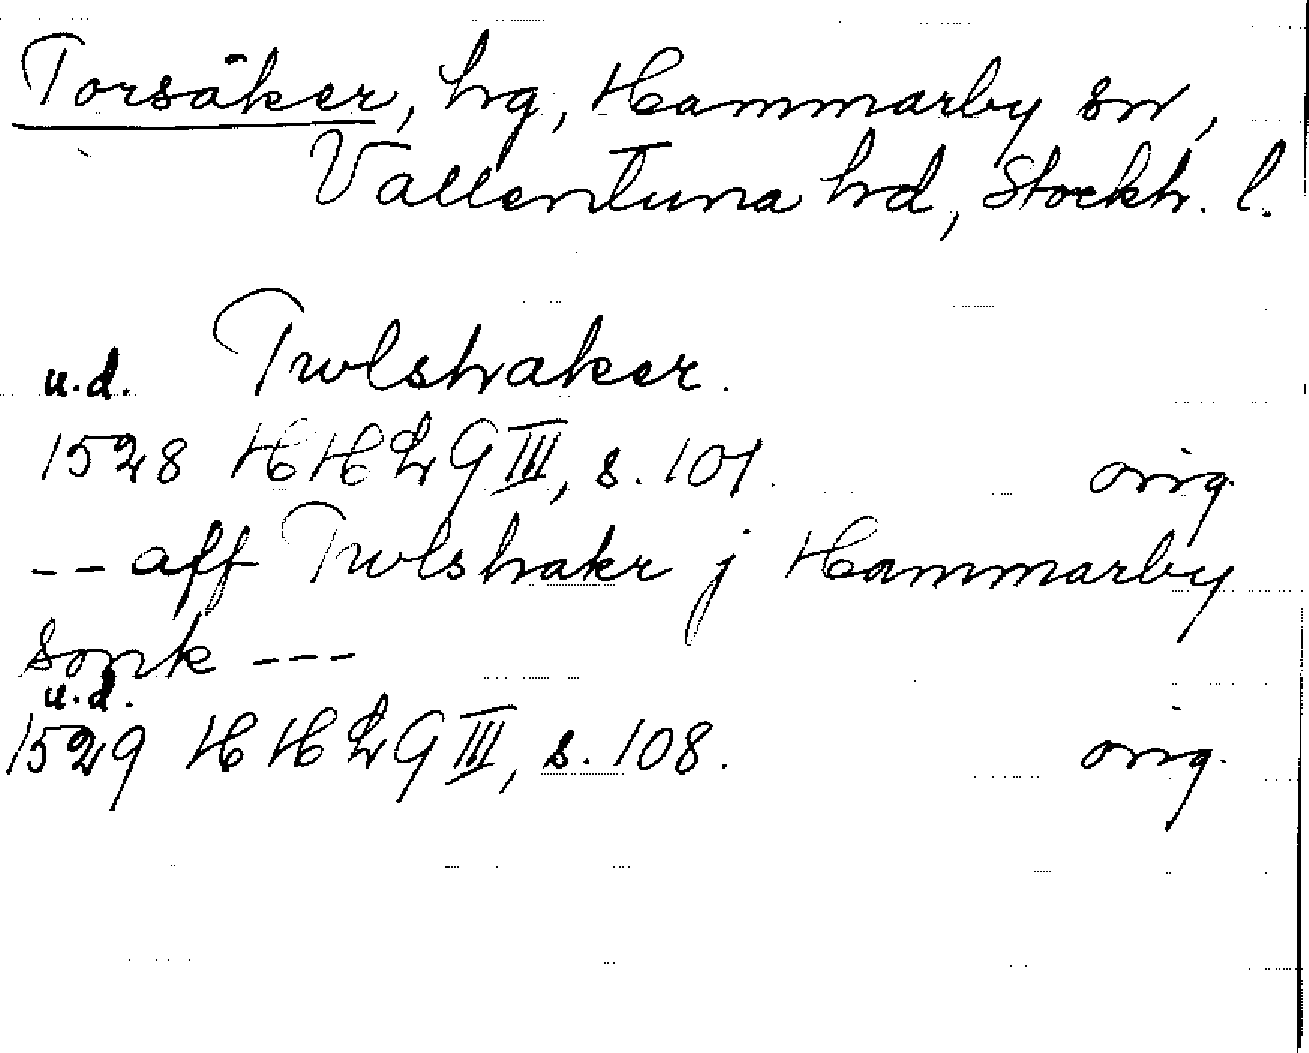 Torsåker, hg, Hammarby sn,
Vallentuna hd, Stockh. l.
u.d. Trolshaker.
1528 HHLG III, s. 101. orig.
-- aff Trolshakr j Hammarby
sopnk ---
u.d.
1529 HHLG III, s. 108. orig.